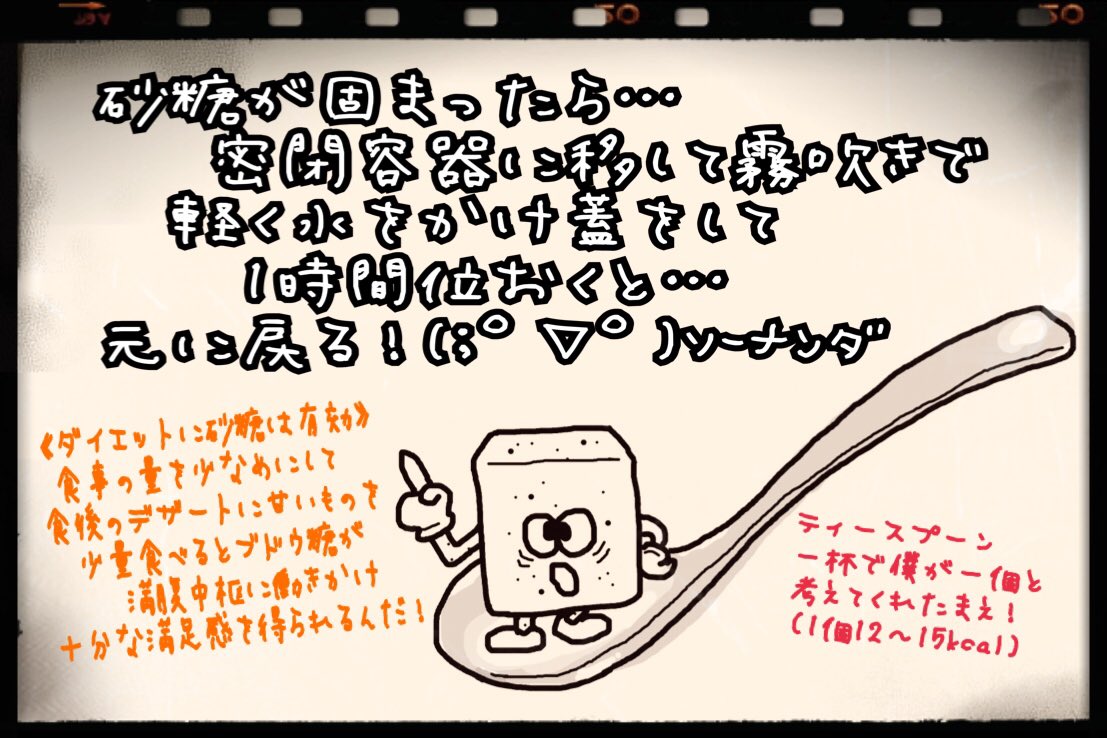 砂糖が固まったら…
密閉容器に移して霧吹きで
軽く水をかけ蓋をして
1時間位おくと…
元に戻る！(;ﾟ▽ﾟ)ソーナンダ
《ダイエットに砂糖は有効》
食事の量を少なめにして
食後のデザートに甘いものを
少量食べるとブドウ糖が
満腹中枢に働きかけ
十分な満足感を得られるんだ！
ティースプーン
一杯で僕が一個と
考えてくれたまえ！
(1個12〜15kcal)